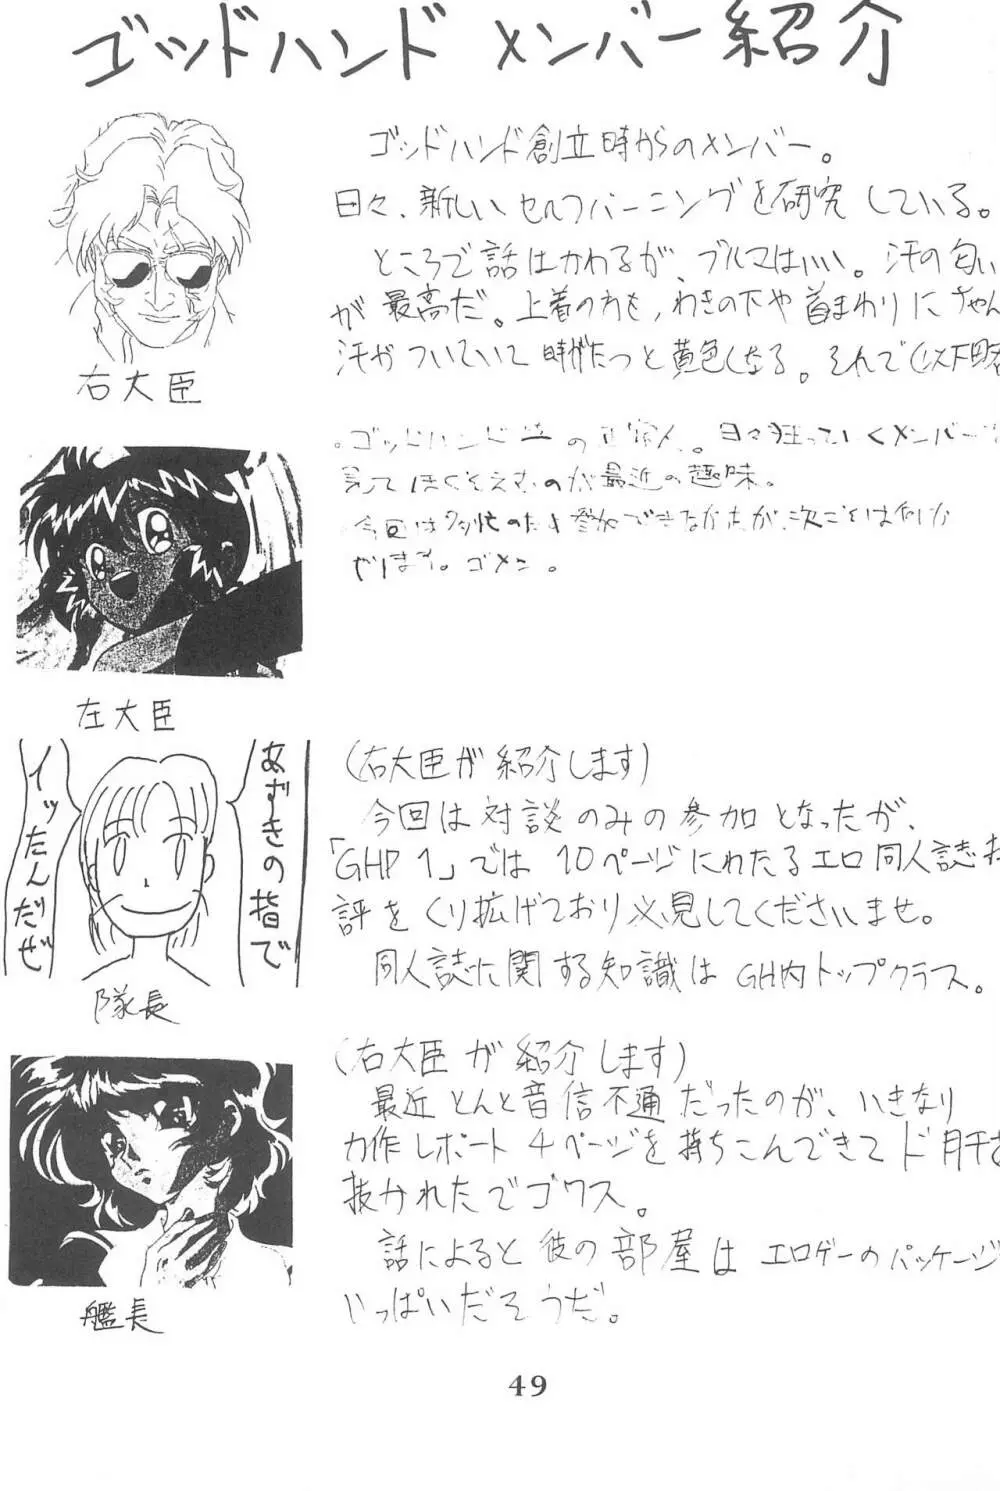 ゴッドハンド メンバー紹介
ゴッドハンド創立時からのメンバー。
日々、新しいセルフバーニングを研究している。
ところで話はかわるが、ブルマはいい。汗の匂い
が最高だ。上着の方も、わきの下や首まわりにちゃん
汗がついていて時がたつと黄色くなる。それで(以下略
右大臣
ゴッドハンド の 日々狂っていくメンバー
見てほくそえむのが最近の趣味。
今回は多忙のため参加できなかったが、次ごとは何か
やります。ゴメン。
左大臣
あずきの指で
イッたんだぜ
隊長
(右大臣が紹介します)
今回は対談のみの参加となったが、
「GHP1」では10ページにわたるエロ同人誌
評をくり拡げており必見してくださいませ。
同人誌に関する知識はGH内トップクラス。
(右大臣が紹介します)
最近とんと音信不通だったのが、いきなり
力作レポート4ページを持ちこんできてド肝を
抜かれたでゴワス。
話によると彼の部屋はエロゲーのパッケージ
いっぱいだそうだ。
艦長
49